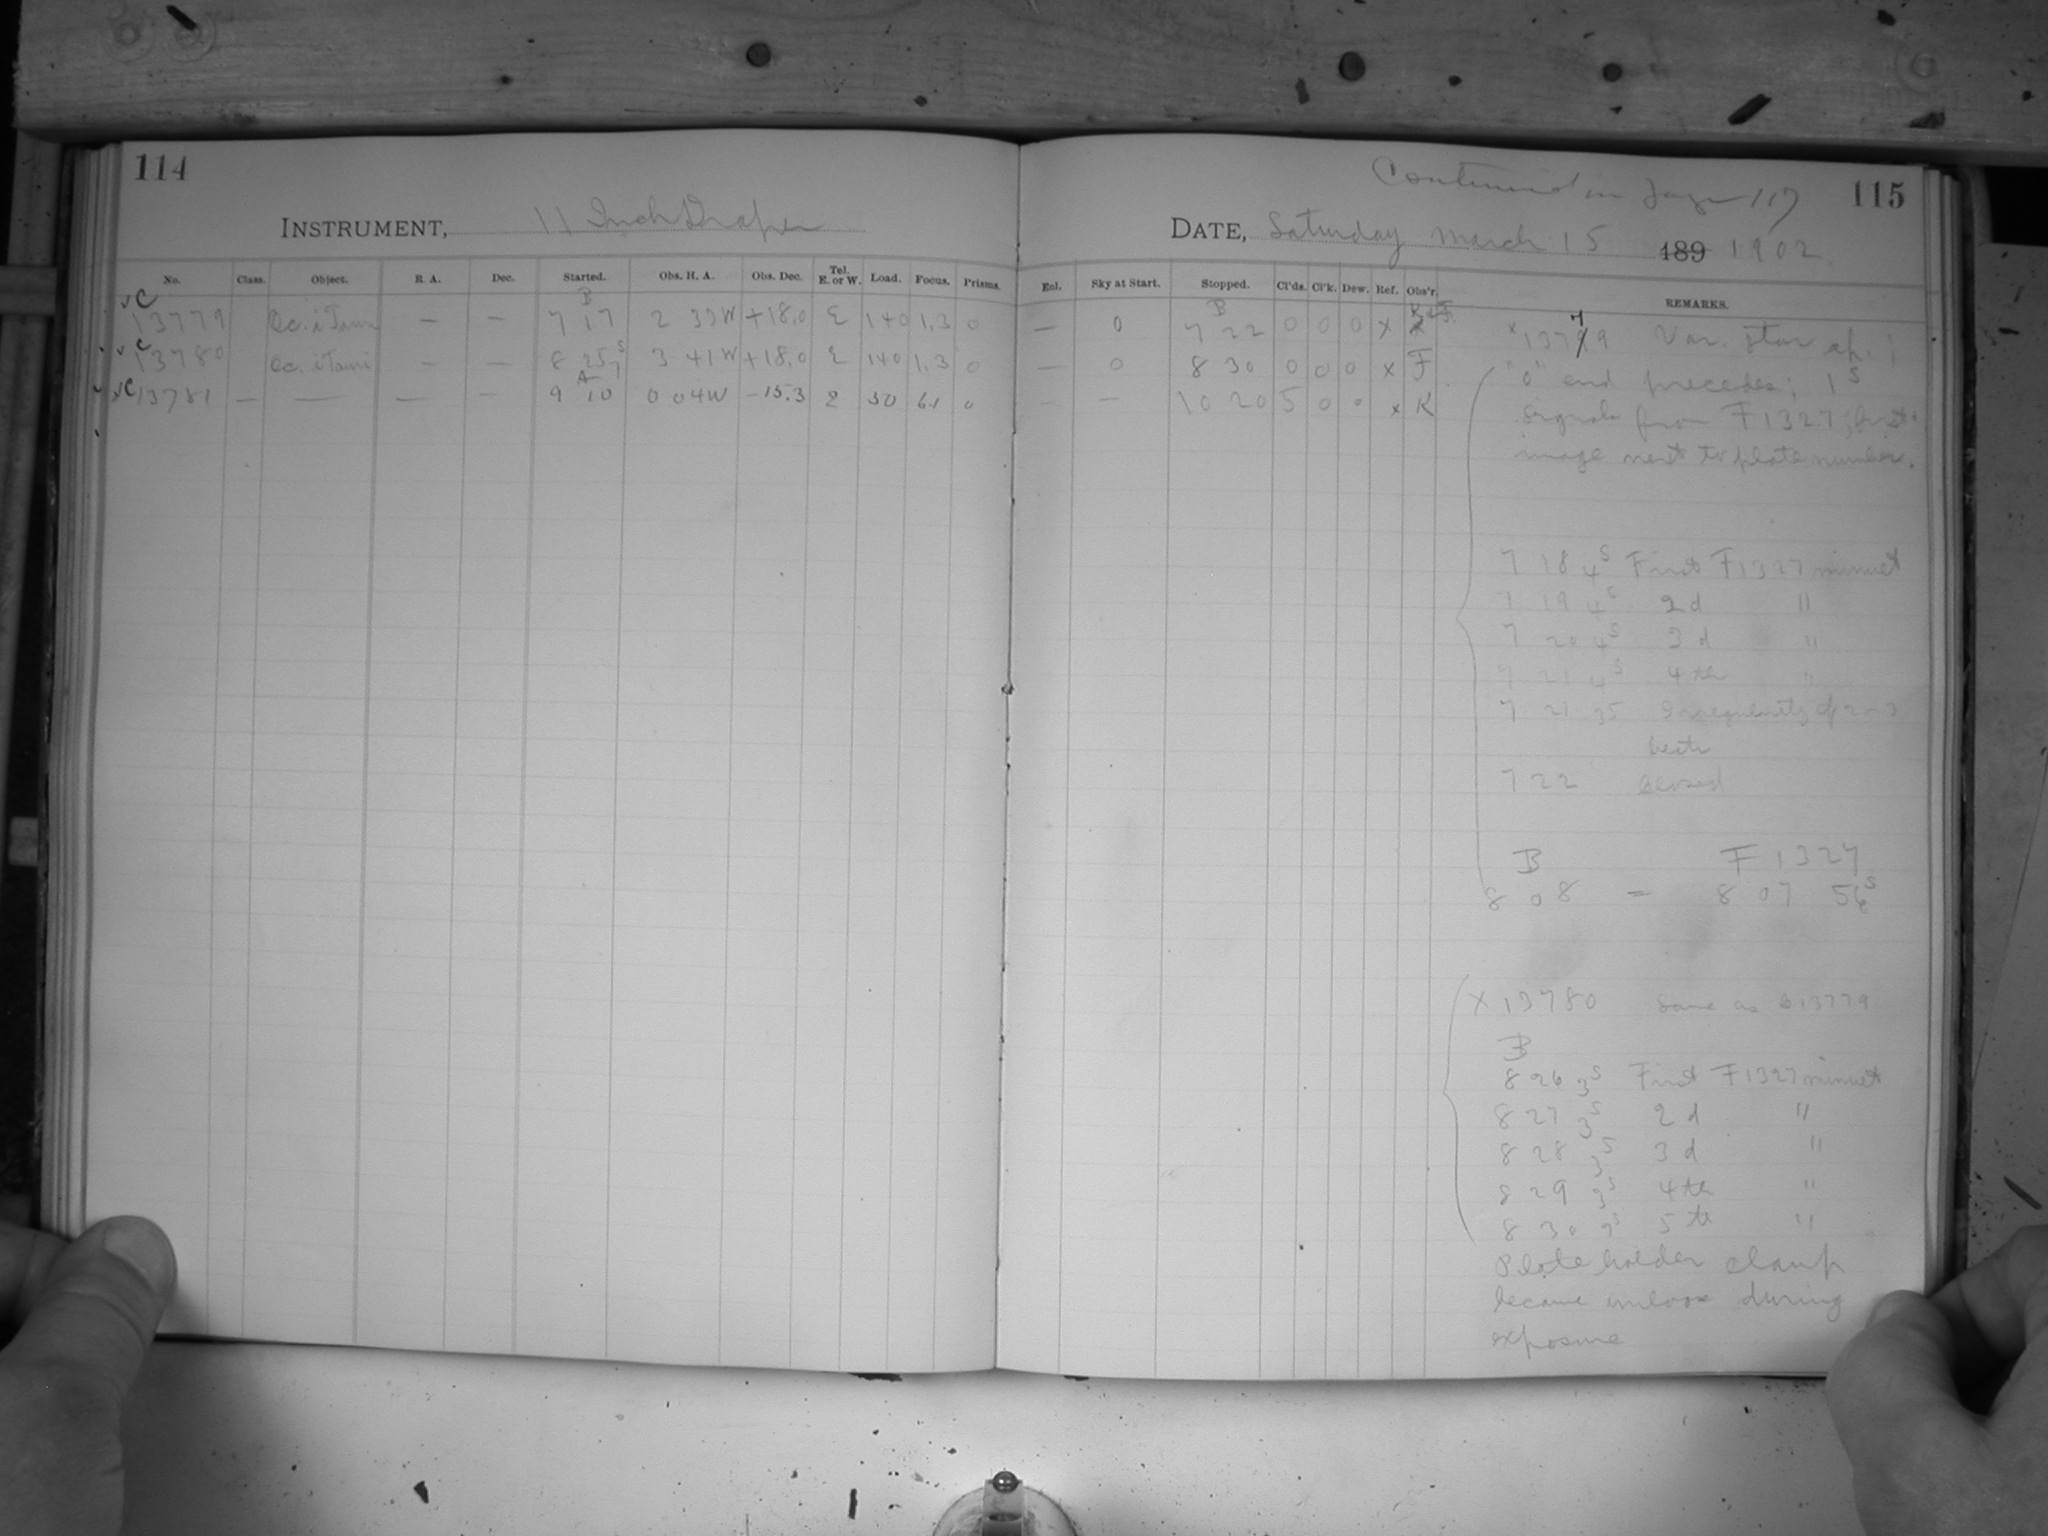 114
INSTRUMENT, 11 Inch Draper
No. Class. Object. R. A. Dec. Started. Obs. H. A. Obs. Dec. Tel. E. or W. Load. Focus. Prisms.
B
√C 13779 Oc. i Tauri — — 7 17 2 33 W +18.0 E 140 1.3 0
√C 13780 Oc. i Tauri — — 8 25 7s 3 41 W +18.0 E 140 1.3 0
A
√C 13781 — — — — 9 10 0 04 W -15.3 E 50 6.1 0
Continued on page 117
115
DATE, Saturday March 15 189 1902
Enl. Sky at Start. Stopped. Cl'ds. Cl'k. Dew. Ref. Obs'r. REMARKS.
B
— 0 7 22 0 0 0 x
— 0 8 30 0 0 0 x F
— — 10 20 5 0 0 x K
x 13779 Var. star ap. ;
"0" end precedes; 1s
signals from F1327; first
image next to plate number.
7 18 4s First F1327 minuet
7 19 4s 2d "
7 20 4s 3d "
7 21 4s 4th "
7 21 35 Irregularity of 2 or 3
beats
7 22 closed
B F 1327
8 08 = 8 07 56s
X 13780 Same as 13779
B
8 26 3s First F1327 minuet
8 27 3s 2d "
8 28 3s 3d "
8 29 3s 4th "
8 30 3s 5th "
Plate holder clamp
became unloose during
exposure